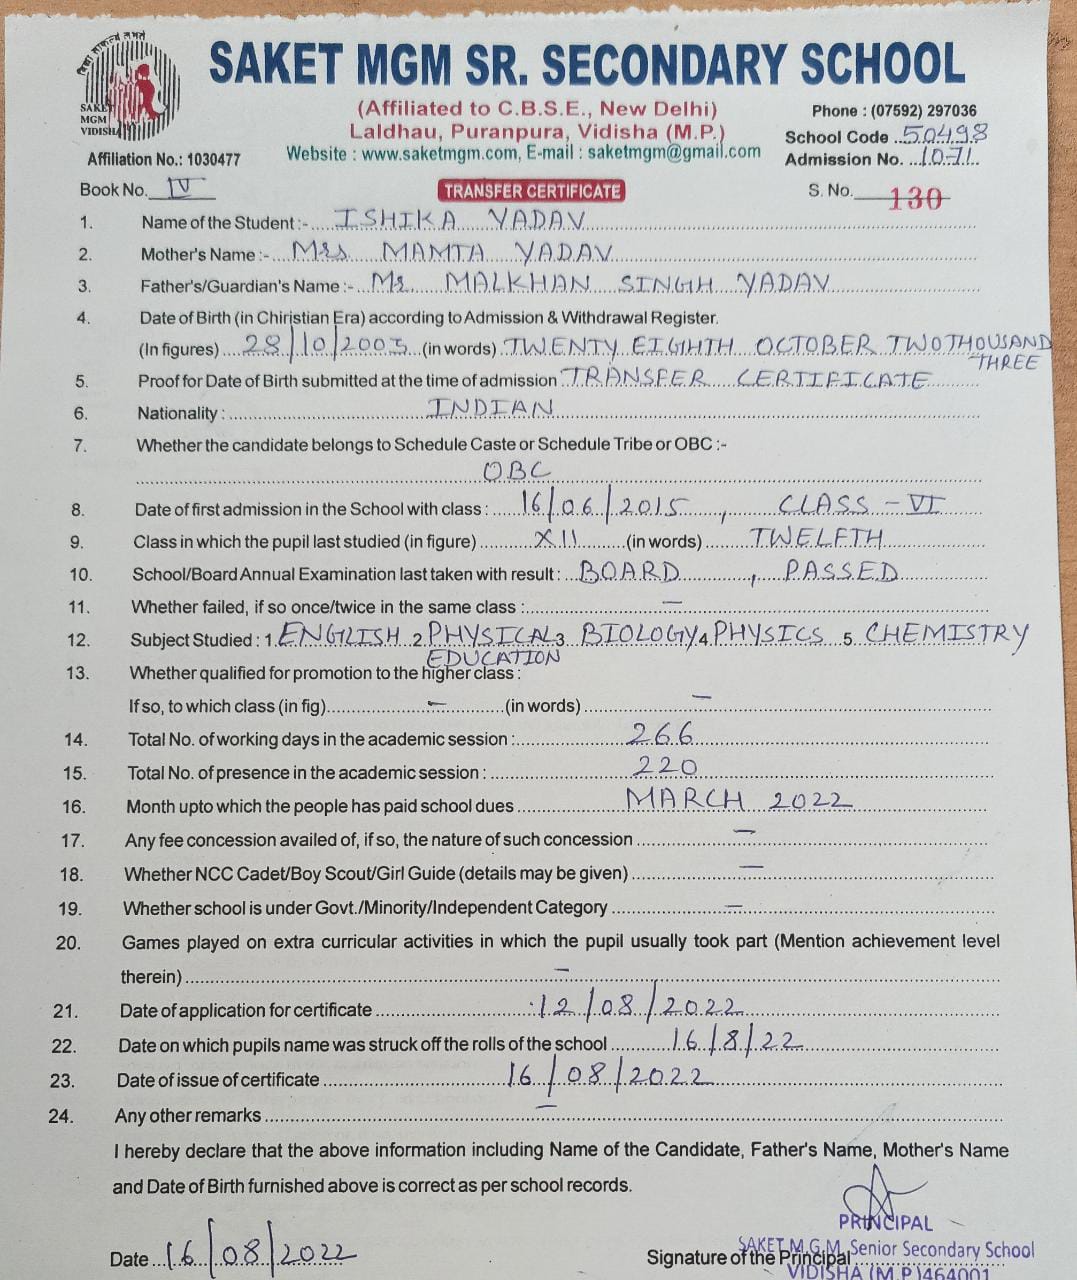 विद्या सर्वत्र लभते
SAKET
MGM
VIDISHA
SAKET MGM SR. SECONDARY SCHOOL
(Affiliated to C.B.S.E., New Delhi)
Phone : (07592) 297036
Laldhau, Puranpura, Vidisha (M.P.)
School Code 50498
Affiliation No.: 1030477
Website : www.saketmgm.com, E-mail : saketmgm@gmail.com
Admission No. 1071
Book No. IV
TRANSFER CERTIFICATE
S. No. 130
1. Name of the Student :- ISHIKA YADAV
2. Mother's Name :- Mrs MAMTA YADAV
3. Father's/Guardian's Name :- Mr. MALKHAN SINGH YADAV
4. Date of Birth (in Chiristian Era) according to Admission & Withdrawal Register.
(In figures) 28/10/2003 (in words) TWENTY EIGHTH OCTOBER TWO THOUSAND
THREE
5. Proof for Date of Birth submitted at the time of admission TRANSFER CERTIFICATE
6. Nationality : INDIAN
7. Whether the candidate belongs to Schedule Caste or Schedule Tribe or OBC :-
OBC
8. Date of first admission in the School with class : 16/06/2015, CLASS - VI
9. Class in which the pupil last studied (in figure) XII (in words) TWELFTH
10. School/Board Annual Examination last taken with result : BOARD, PASSED
11. Whether failed, if so once/twice in the same class : —
12. Subject Studied : 1. ENGLISH 2. PHYSICAL 3. BIOLOGY 4. PHYSICS 5. CHEMISTRY
EDUCATION
13. Whether qualified for promotion to the higher class :
If so, to which class (in fig) — (in words) —
14. Total No. of working days in the academic session : 266
15. Total No. of presence in the academic session : 220
16. Month upto which the people has paid school dues MARCH 2022
17. Any fee concession availed of, if so, the nature of such concession —
18. Whether NCC Cadet/Boy Scout/Girl Guide (details may be given) —
19. Whether school is under Govt./Minority/Independent Category —
20. Games played on extra curricular activities in which the pupil usually took part (Mention achievement level
therein) —
21. Date of application for certificate 12/08/2022
22. Date on which pupils name was struck off the rolls of the school 16/8/22
23. Date of issue of certificate 16/08/2022
24. Any other remarks —
I hereby declare that the above information including Name of the Candidate, Father's Name, Mother's Name
and Date of Birth furnished above is correct as per school records.
PRINCIPAL
SAKET M.G.M. Senior Secondary School
Date 16/08/2022
Signature of the Principal
VIDISHA (M.P.) 464001